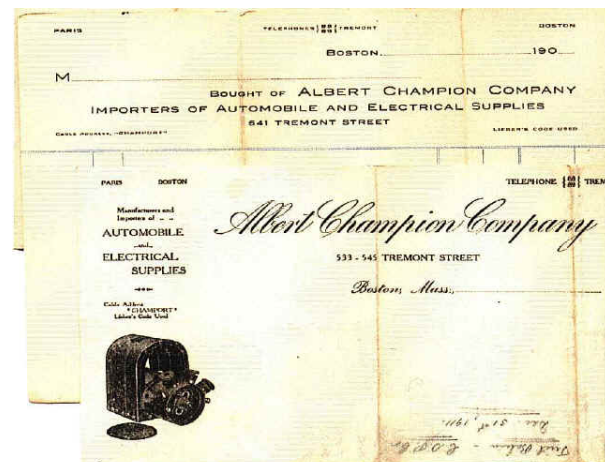 PARIS
TELEPHONES 88 89 TREMONT
BOSTON
BOSTON 190
M
BOUGHT OF ALBERT CHAMPION COMPANY
IMPORTERS OF AUTOMOBILE AND ELECTRICAL SUPPLIES
541 TREMONT STREET
CABLE ADDRESS, "CHAMPORT"
LIEBER'S CODE USED
PARIS BOSTON
TELEPHONE TREM
Manufacturers and
Importers of
AUTOMOBILE
and
ELECTRICAL
SUPPLIES
Cable Address
"CHAMPORT"
Lieber's Code Used
Albert Champion Company
533 - 545 TREMONT STREET
Boston, Mass.
Dec. 31st, 1911.